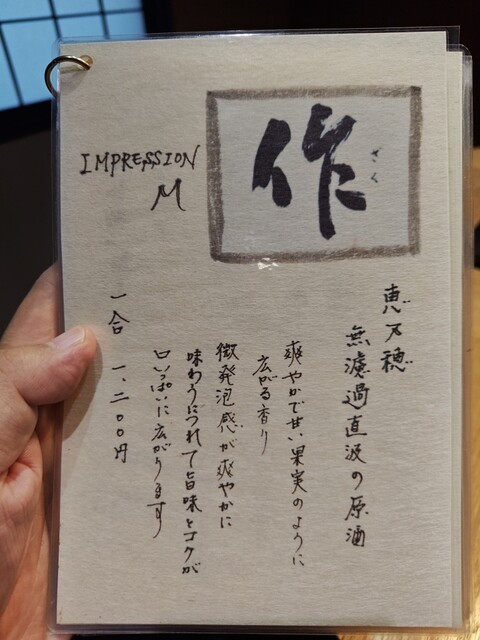 作
ざく
IMPRESSION
M
恵乃穂
無濾過直汲の原酒
爽やかで甘い果実のように
広がる香り
微発泡感が爽やかに
味わうにつれて旨味とコクが
口いっぱいに広がります
一合 一、二〇〇円